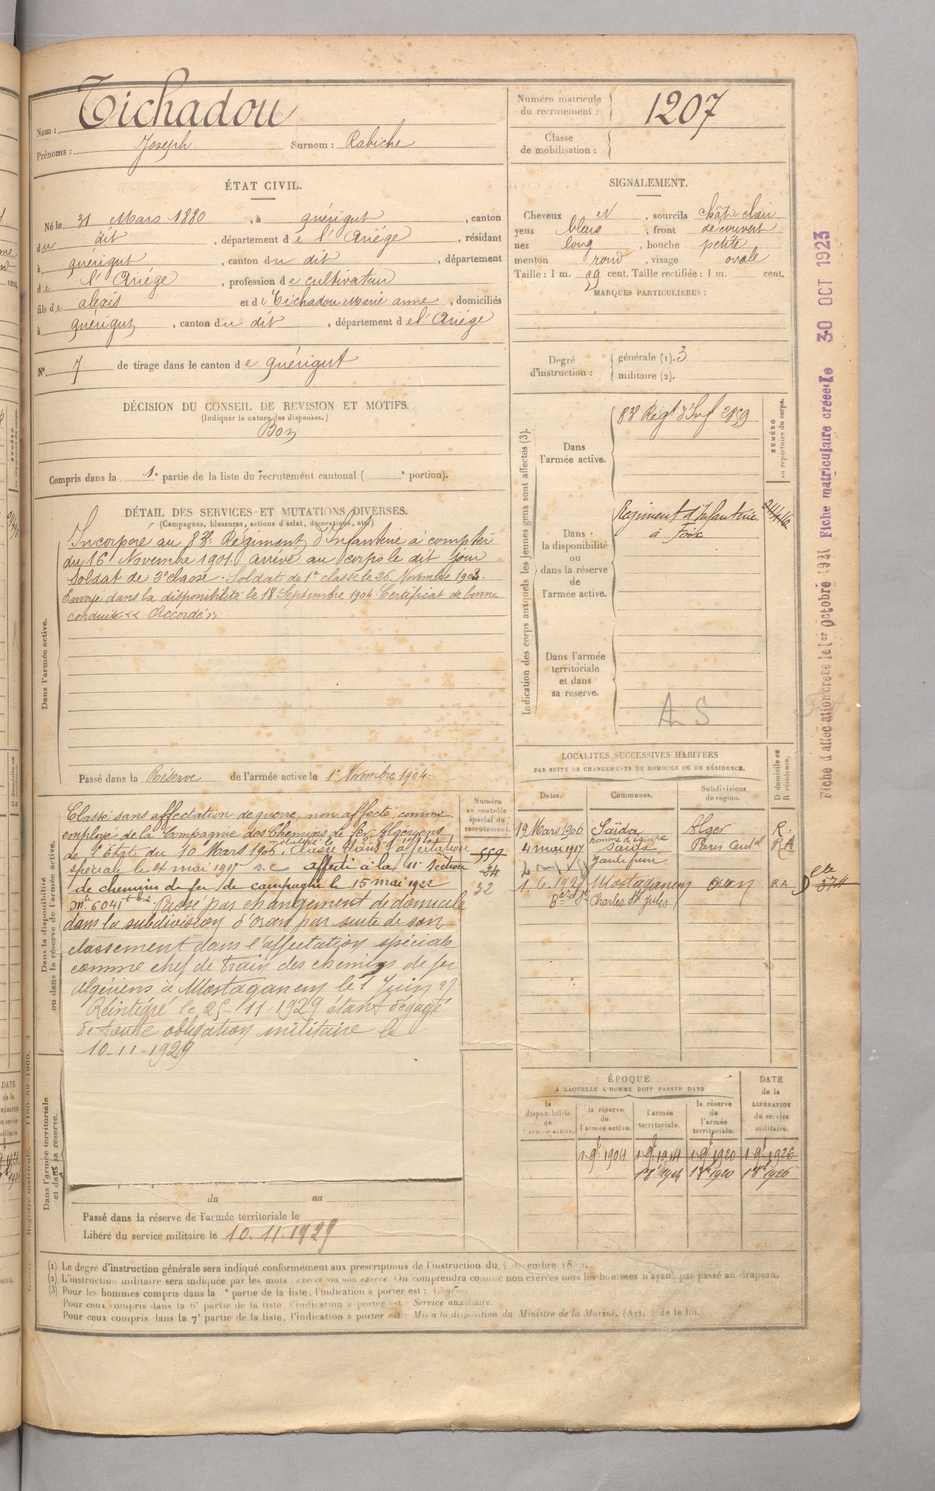 Nom : Tichadou
Prénoms : Joseph Surnom : Rabiche
Numéro matricule du recrutement : 1207
Classe de mobilisation :
ÉTAT CIVIL.
Né le 31 Mars 1880, à quérigut, canton
du dit, département de l'Ariége, résidant
à quérigut, canton du dit, département
de l'Ariége, profession de cultivateur
fils de alexis et d Tichadou Marie anne, domiciliés
à quérigut, canton du dit, département de l'Ariége
N° 7 de tirage dans le canton de quérigut
DÉCISION DU CONSEIL DE REVISION ET MOTIFS.
(Indiquer la nature des dispenses.)
Bon
Compris dans la 1e partie de la liste du recrutement cantonal ( e portion).
DÉTAIL DES SERVICES ET MUTATIONS DIVERSES.
(Campagnes, blessures, actions d'éclat, décorations, etc.)
Incorporé au 83e Régiment d'Infanterie à compter
du 16 Novembre 1901. arrivé au corps le dit jour
soldat de 2e classe. Soldat de 1e classe le 25 Novembre 1903.
Envoyé dans la disponibilité le 18 Septembre 1904. Certificat de bonne
conduite << Accordé >>
Dans l'armée active.
Passé dans la Réserve de l'armée active le 1er Novembre 1904.
Classé sans affectation de guerre, non affecté comme
employé de la Compagnie des Chemins de fer Algériens
de l'Etat du 10 Mars 1906. Classé dans l'affectation
spéciale le 24 mai 1917 s.c. affecté à la 11e Section
de chemins de fer de campagne le 15 mai 1922
Passé par changement de domicile
dans la subdivision d'Oran par suite de son
classement dans l'affectation spéciale
comme chef de train des chemins de fer
algériens à Mostaganem le 1 Juin 27
Réintégré le 25-11-1929 étant dégagé
de toute obligation militaire le
10-11-1929
Dans la disponibilité ou dans la réserve de l'armée active.
Dans l'armée territoriale et dans sa réserve.
Numéro au contrôle spécial du recrutement.
559
24
22
du au
Passé dans la réserve de l'armée territoriale le
Libéré du service militaire le 10.11.1929
SIGNALEMENT.
Cheveux et, sourcils chât clair
yeux bleus, front découvert
nez long, bouche petite
menton rond, visage ovale
Taille : 1 m. cent. Taille rectifiée : 1 m. cent.
MARQUES PARTICULIÈRES :
Degré d'instruction : générale (1). 3
militaire (2).
Indication des corps auxquels les jeunes gens sont affectés (3).
Dans l'armée active. 83e Regt d'Inf 2859
Dans la disponibilité ou dans la réserve de l'armée active. Régiment d'Infanterie
à Foix
Dans l'armée territoriale et dans sa réserve.
A S
NUMÉRO au répertoire du corps.
LOCALITÉS SUCCESSIVES HABITÉES
PAR SUITE DE CHANGEMENTS DE DOMICILE OU DE RÉSIDENCE.
Dates. Communes. Subdivisions de région. D domicile ou R résidence.
19 Mars 1906 Saïda Alger R.
4 mai 1917 Saïda Paris Cent al RA
1.6.1927 Mostaganem oran RA
Charles St Gilles
ÉPOQUE
A LAQUELLE L'HOMME DOIT PASSER DANS
la disponibilité de l'armée active. la réserve de l'armée active. l'armée territoriale. la réserve de l'armée territoriale. DATE de la LIBÉRATION du service militaire.
1 9bre 1904 1 9bre 1914 1 9bre 1920 1 9bre 1926
Fiche d'affectation créée le 1er octobre 1931 Fiche matriculaire créée le 30 OCT 1923
(1) Le degré d'instruction générale sera indiqué conformément aux prescriptions de l'instruction du décembre
(2) L'instruction militaire sera indiquée par les mots : exercé ou non exercé. On comprendra comme non exercés tous les hommes n'ayant pas passé au drapeau.
(3) Pour les hommes compris dans la e partie de la liste, l'indication à porter est :
Pour ceux compris dans la 6e partie de la liste, l'indication à porter est : Service auxiliaire.
Pour ceux compris dans la 7e partie de la liste, l'indication à porter est : Mis à la disposition du Ministre de la Marine. (Art. de la loi.)